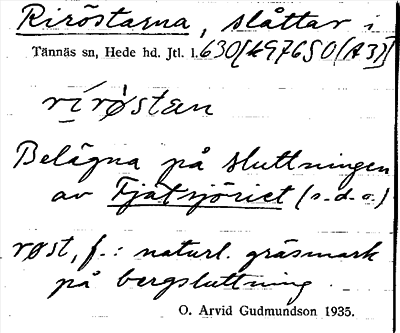 Riröstarna, slåttar i
Tännäs sn, Hede hd. Jtl. l. 630[497650(A3)]
rírøsten
Belägna på sluttningen
av Fjätsjöriet (s.d.o.)
røst, f.: naturl. gräsmark
på bergsluttning.
O. Arvid Gudmundson 1935.